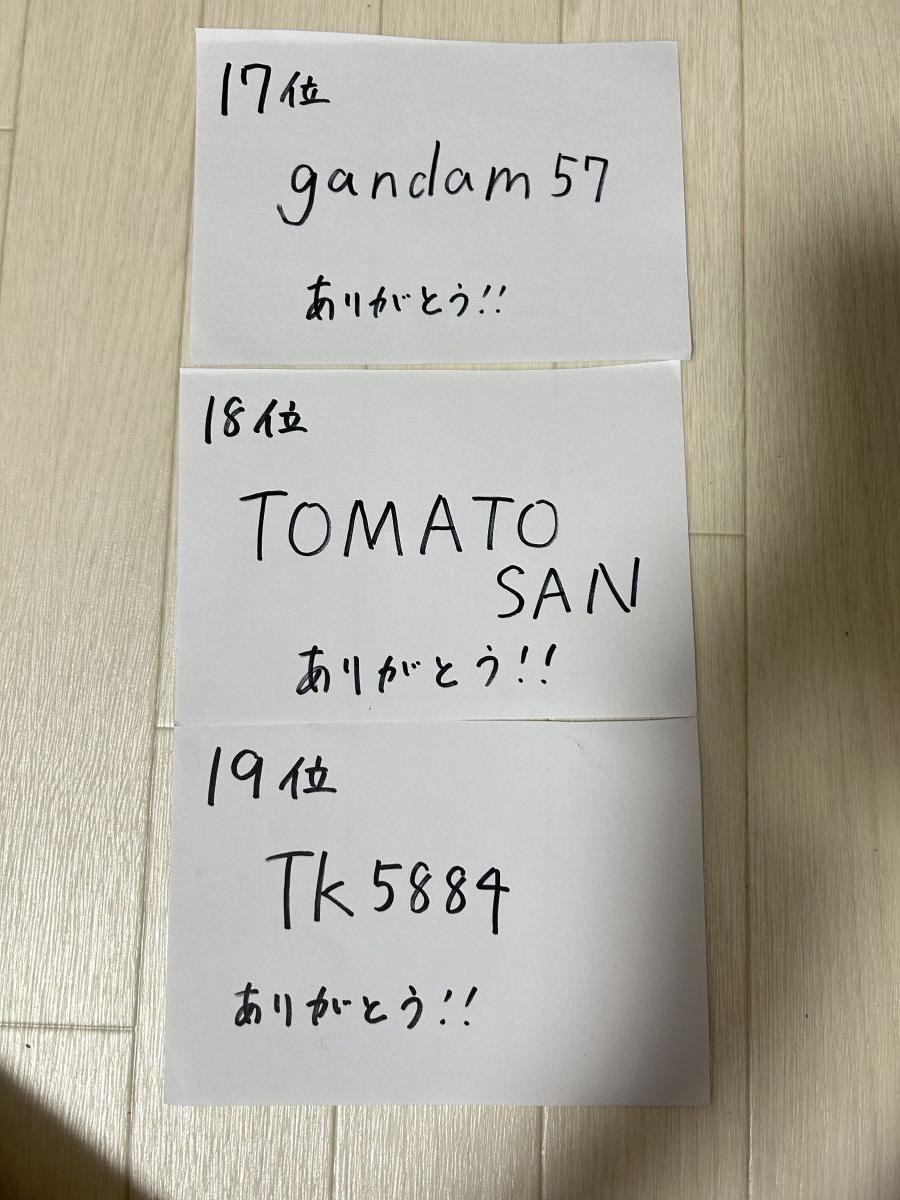 17位
gandam57
ありがとう!!
18位
TOMATO
SAN
ありがとう!!
19位
Tk5884
ありがとう!!